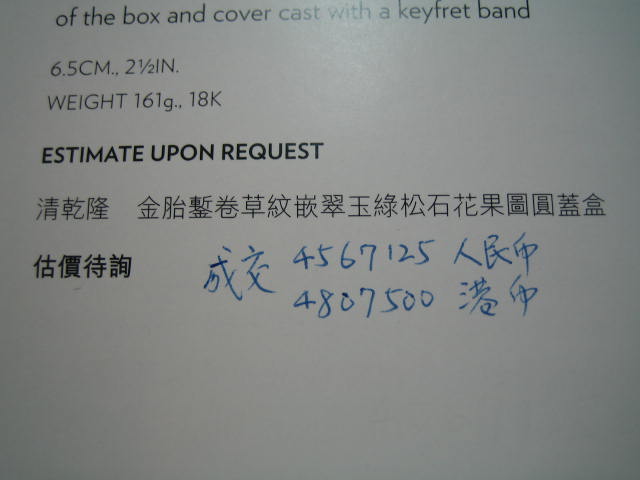 of the box and cover cast with a keyfret band
6.5CM., 2½IN.
WEIGHT 161g., 18K
ESTIMATE UPON REQUEST
清乾隆 金胎鏨卷草紋嵌翠玉綠松石花果圖圓蓋盒
估價待詢
成交 4567125 人民币
4807500 港币